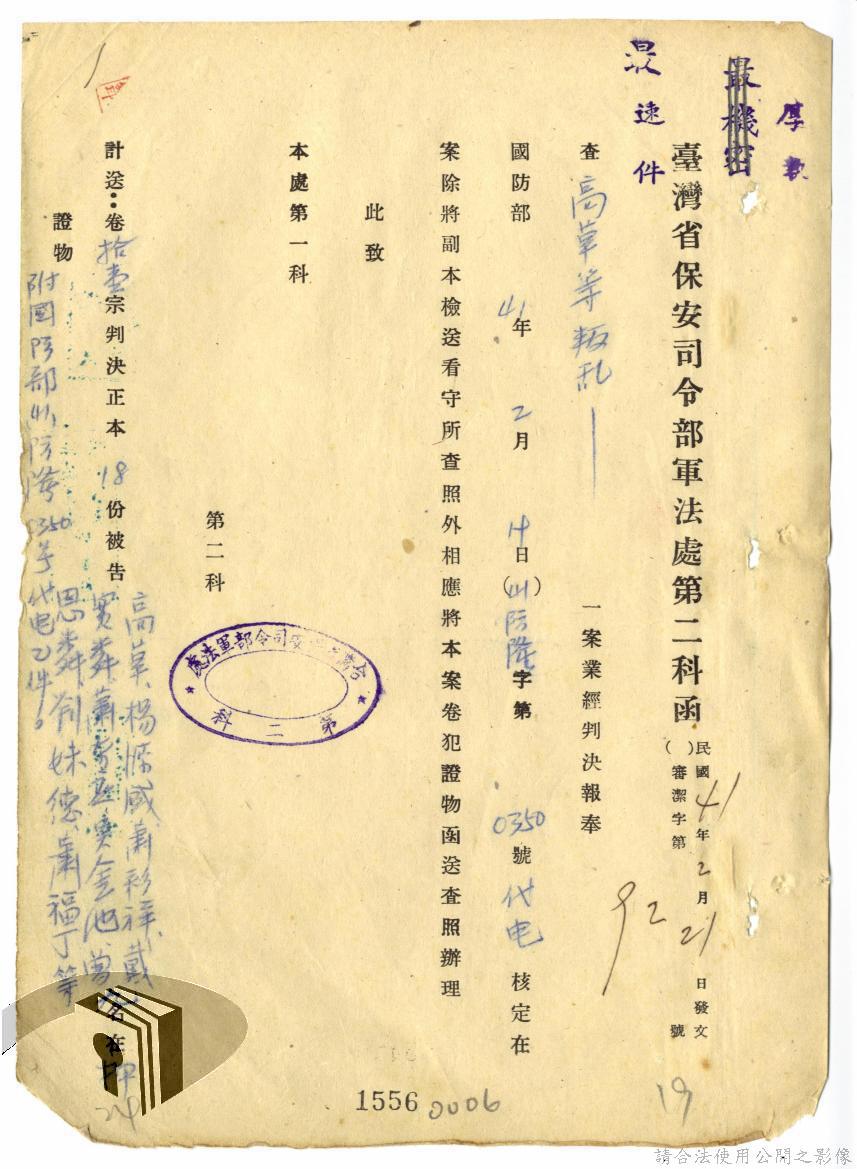 最機密
最速件
臺灣省保安司令部軍法處第二科函
民國41年2月21日發文
( )審潔字第 92 號
查高草等叛乱 一案業經判決報奉
國防部 41年 2月 14日(41)防隆字第 0350 號代电 核定在
案除將副本檢送看守所查照外相應將本案卷犯證物函送查照辦理
此致
本處第一科
第二科
司令部軍法處
第二科
計送:卷拾壹宗判決正本 18 份被告高草、楊 威蕭彩祥、戴
蕭 金池曾 名在押
恩 劉妹德、蕭福丁等
證物
附國防部41防隆0350号代电乙件。
1556
0006
19
請合法使用公開之影像